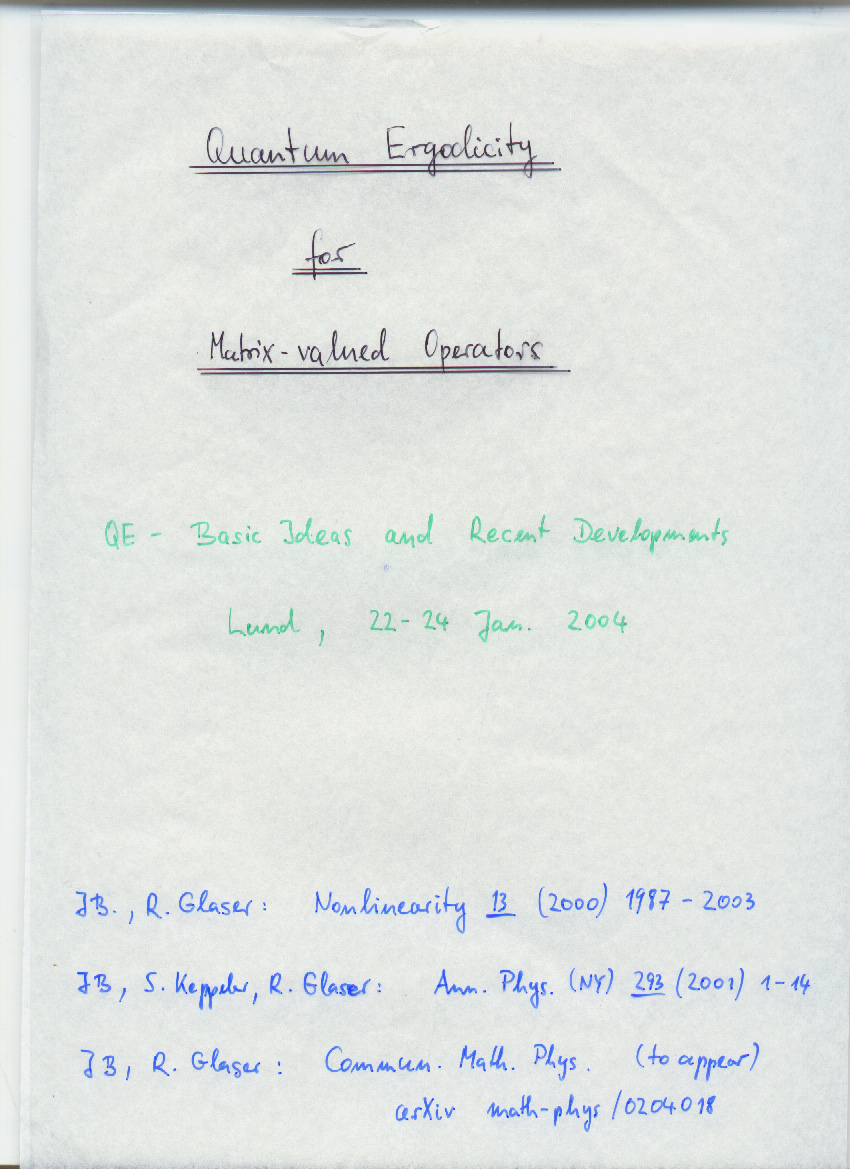 Quantum Ergodicity
for
Matrix-valued Operators
QE - Basic Ideas and Recent Developments
Lund, 22-24 Jan. 2004
JB., R. Glaser: Nonlinearity 13 (2000) 1987 - 2003
JB, S. Keppeler, R. Glaser: Ann. Phys. (NY) 293 (2001) 1-14
JB, R. Glaser: Commun. Math. Phys. (to appear)
arXiv math-phys/0204018